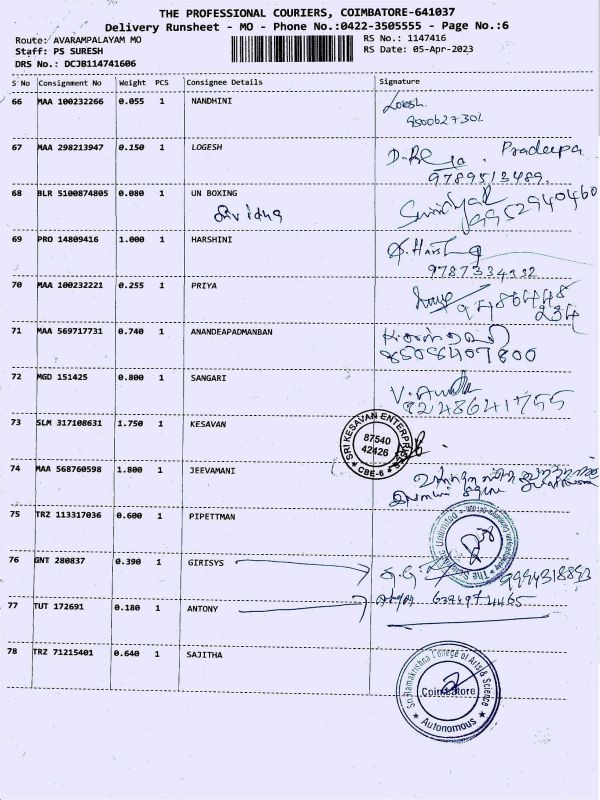 THE PROFESSIONAL COURIERS, COIMBATORE-641037
Delivery Runsheet - MO - Phone No.:0422-3505555 - Page No.:6
Route: AVARAMPALAYAM MO
RS No.: 1147416
Staff: PS SURESH
RS Date: 05-Apr-2023
DRS No.: DCJB114741606
S No Consignment No Weight PCS Consignee Details Signature
66 MAA 100232266 0.055 1 NANDHINI
9500627302
67 MAA 298213947 0.150 1 LOGESH
Pradeepa
9789513489.
68 BLR 5100874805 0.080 1 UN BOXING
9952940460
69 PRO 14809416 1.000 1 HARSHINI
9787334332
70 MAA 100232221 0.255 1 PRIYA
9486448
234
71 MAA 569717731 0.740 1 ANANDEAPADMANBAN
8508407800
72 MGD 151425 0.800 1 SANGARI
8248641755
73 SLM 317108631 1.750 1 KESAVAN
SRI KESAVAN ENTERPRISES
87540
42426
CBE-6
74 MAA 568760598 1.800 1 JEEVAMANI
75 TRZ 113317036 0.600 1 PIPETTMAN
76 GNT 280837 0.390 1 GIRISYS
9994318893
77 TUT 172691 0.180 1 ANTONY
78 TRZ 71215401 0.640 1 SAJITHA
Sri Ramakrishna College of Arts & Science
Coimbatore
Autonomous